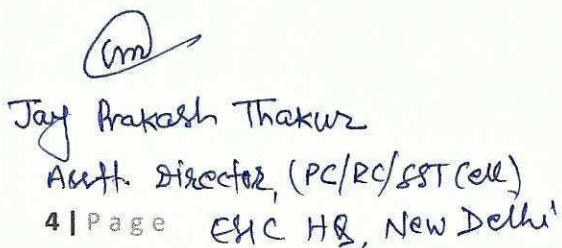 Jay Prakash Thakur
Asstt. Director, (PC/RC/SST Cell)
4 | Page ESIC HQ, New Delhi